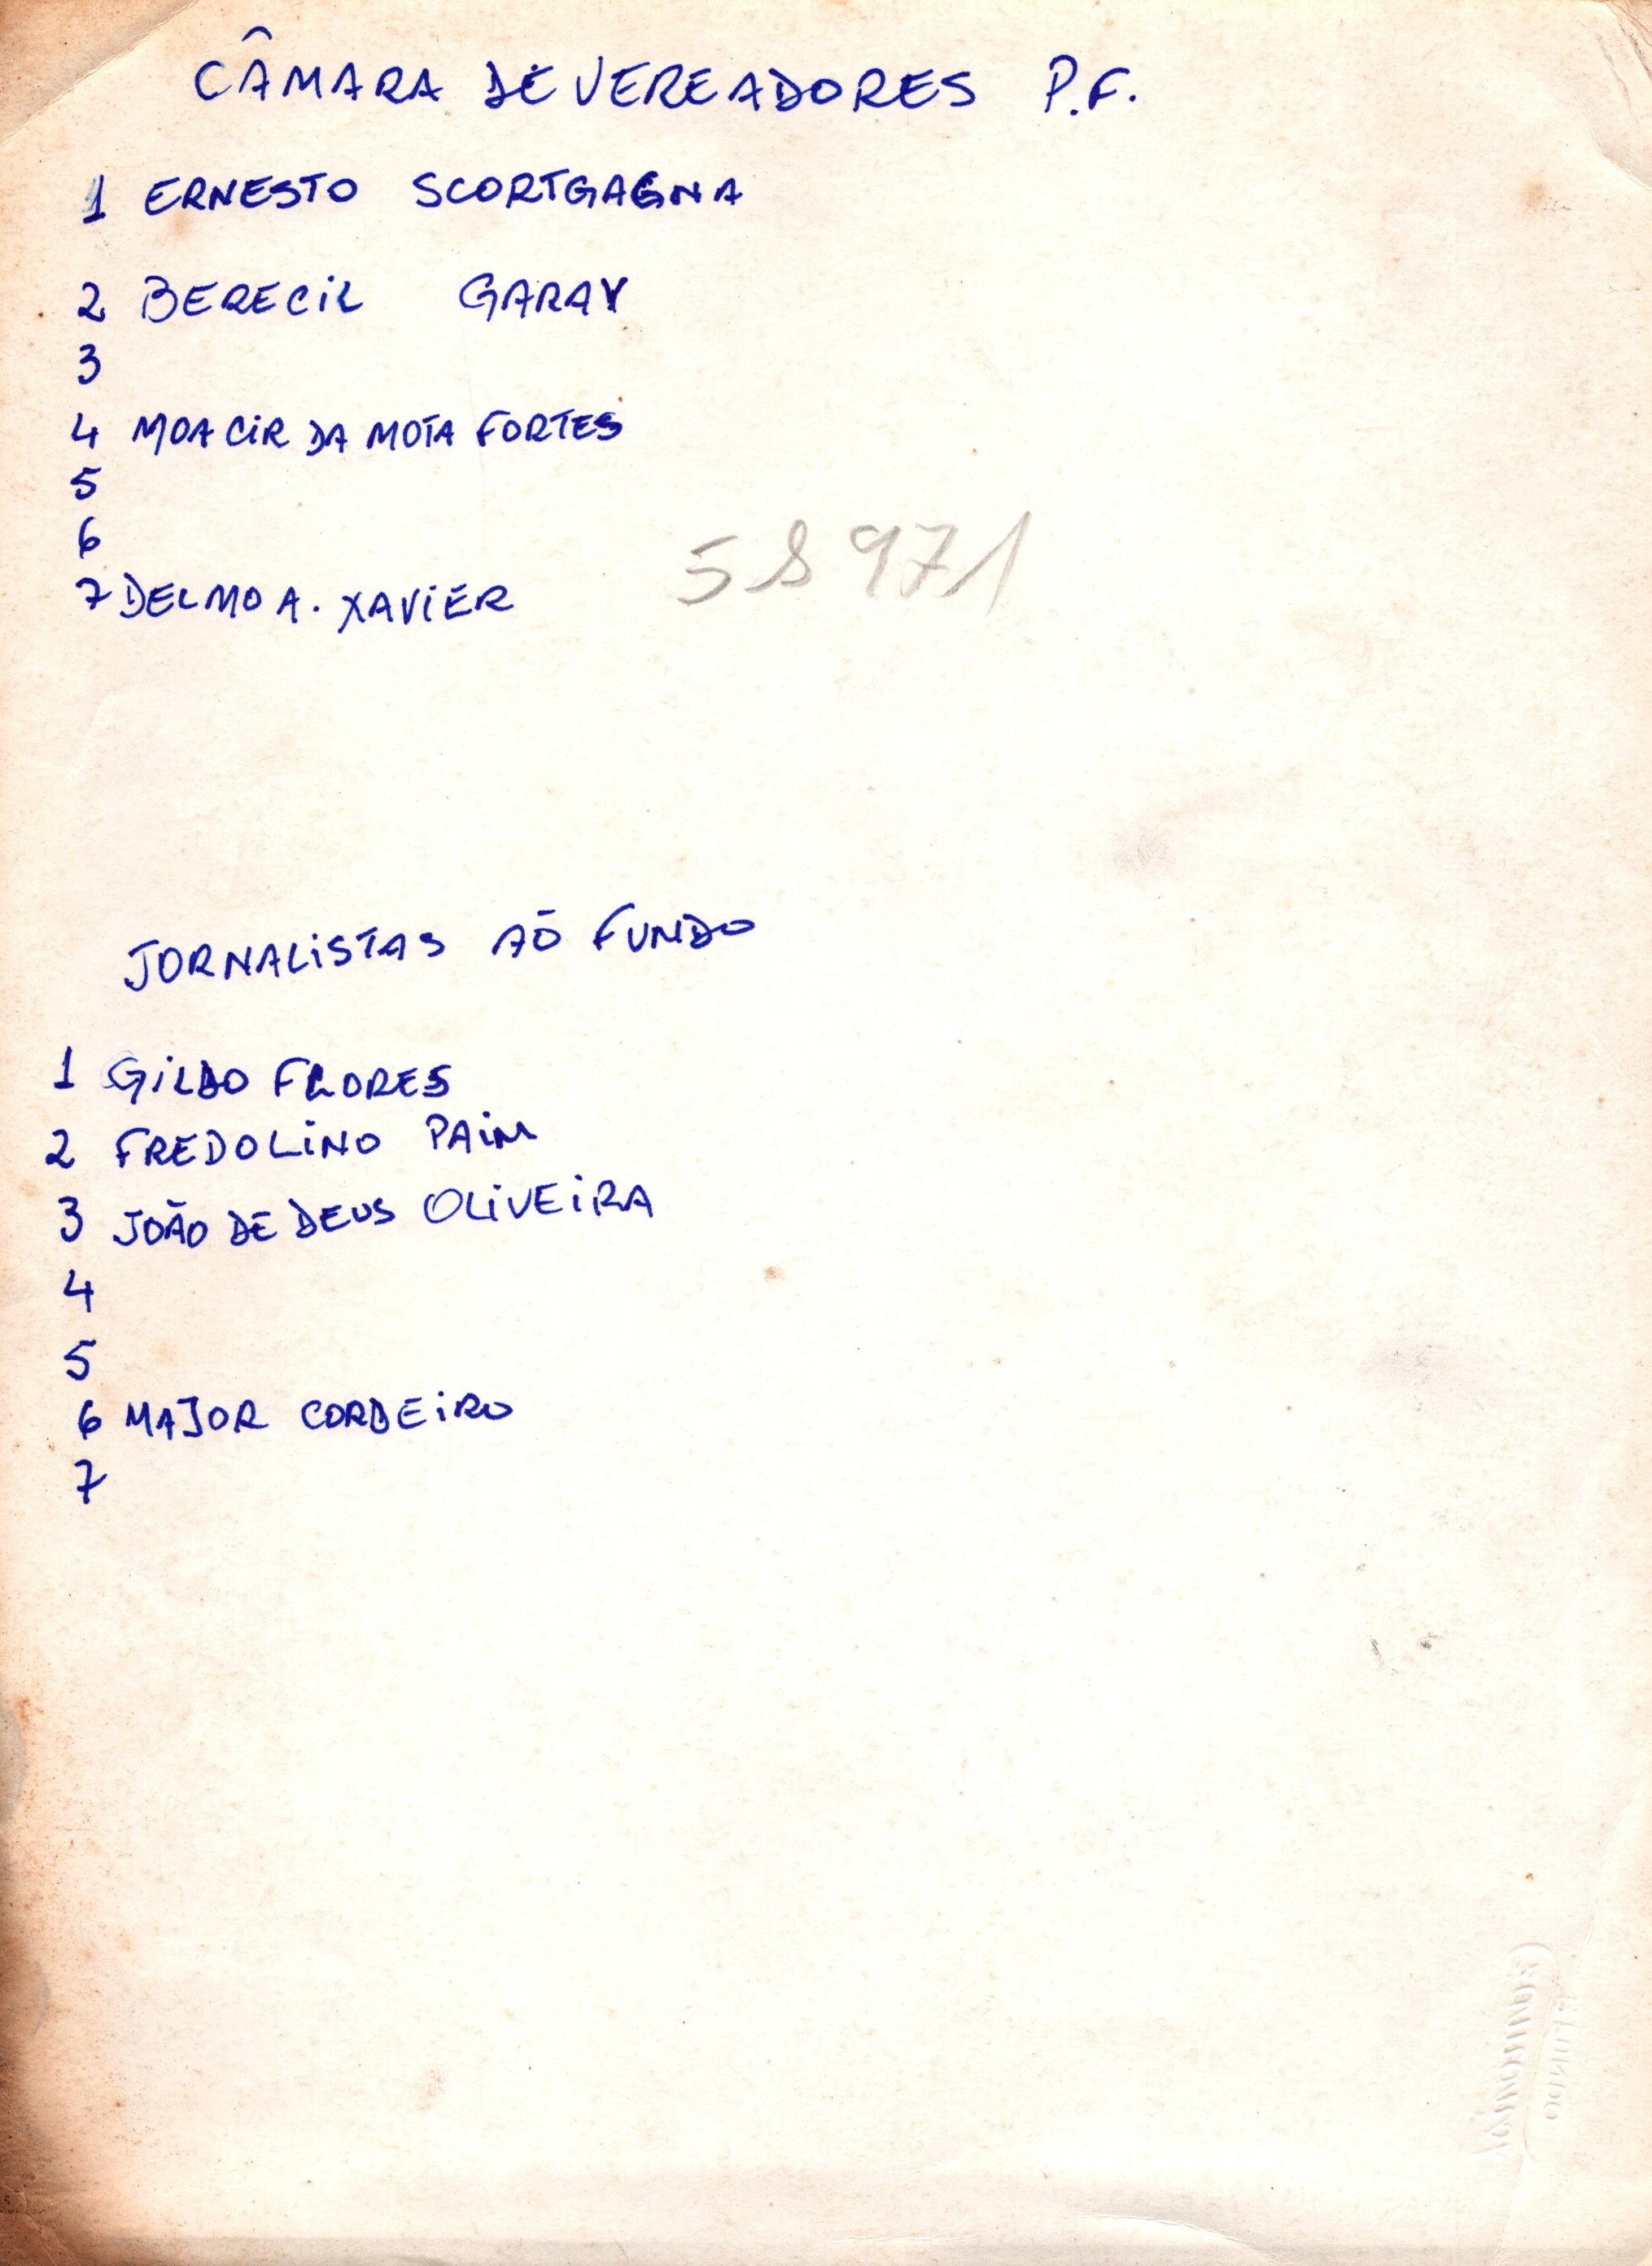 CÂMARA DE VEREADORES P.F.
1 ERNESTO SCORTGAGNA
2 BERECIL GARAY
3
4 MOACIR DA MOTA FORTES
5
6
58971
7 DELMO A. XAVIER
JORNALISTAS AO FUNDO
1 GILDO FLORES
2 FREDOLINO PAIM
3 JOÃO DE DEUS OLIVEIRA
4
5
6 MAJOR CORDEIRO
7